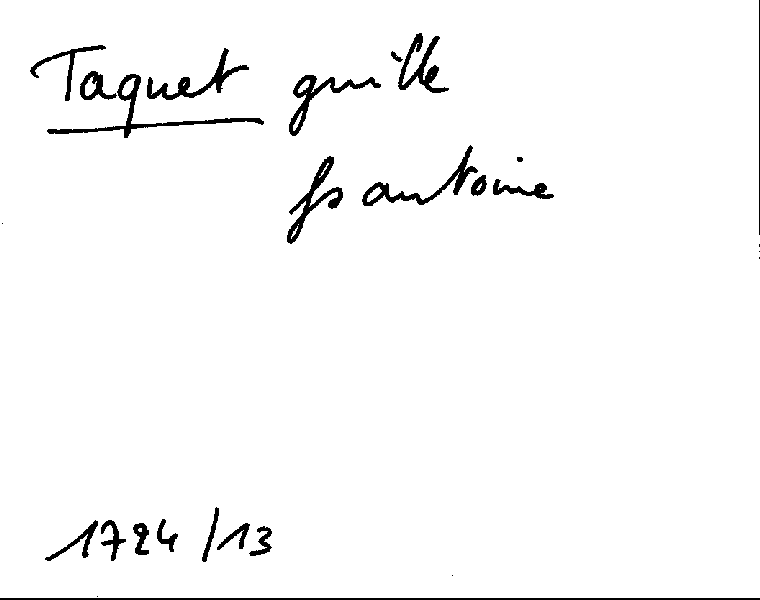 Taquet guille
fs antoine
1724/13